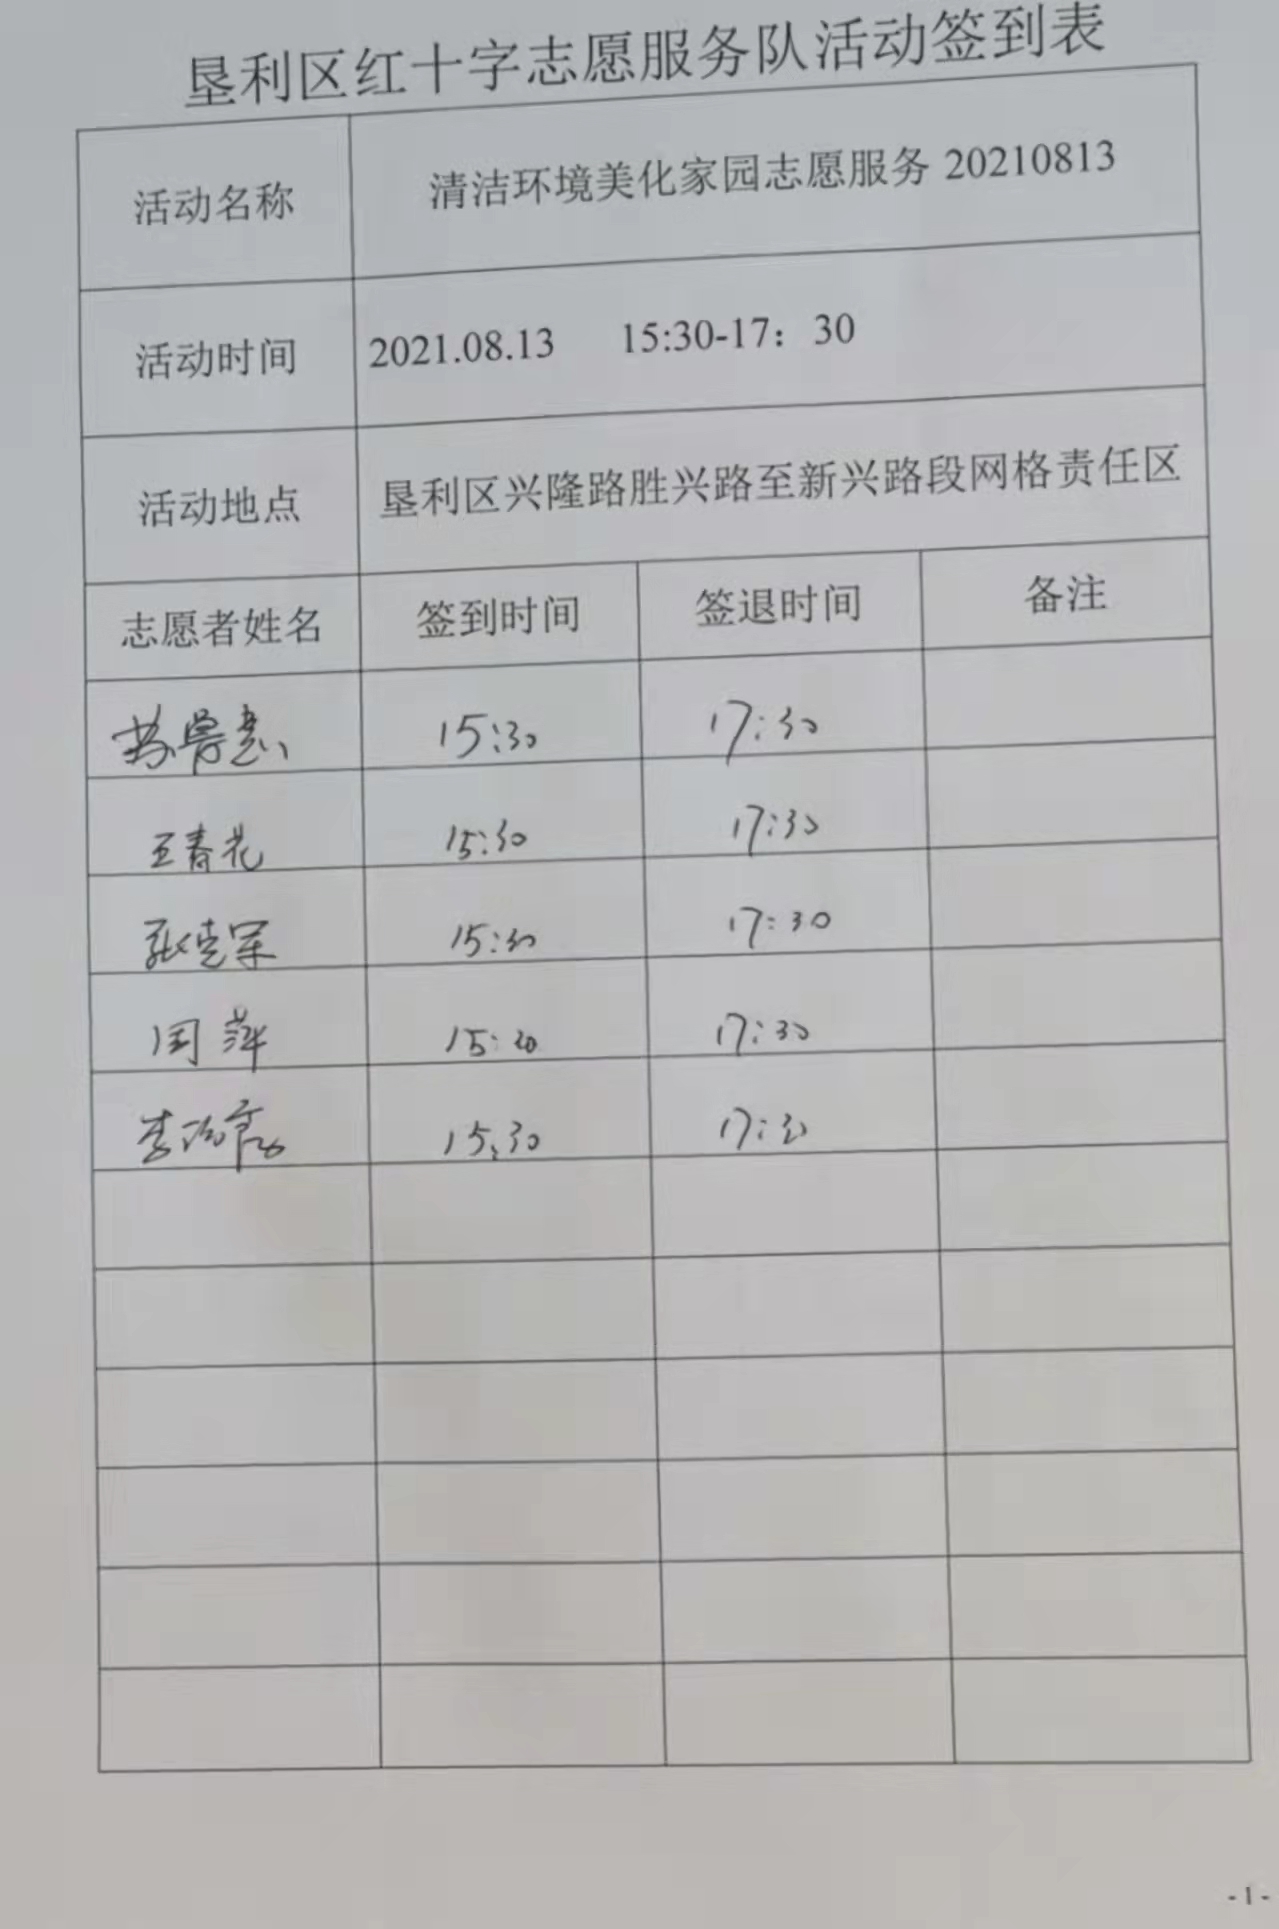 垦利区红十字志愿服务队活动签到表
活动名称 清洁环境美化家园志愿服务 20210813
活动时间 2021.08.13 15:30-17：30
活动地点 垦利区兴隆路胜兴路至新兴路段网格责任区
志愿者姓名 签到时间 签退时间 备注
15:30 17:30
王春花 15:30 17:30
15:30 17:30
萍 15:30 17:30
李 15:30 17:30
- 1 -